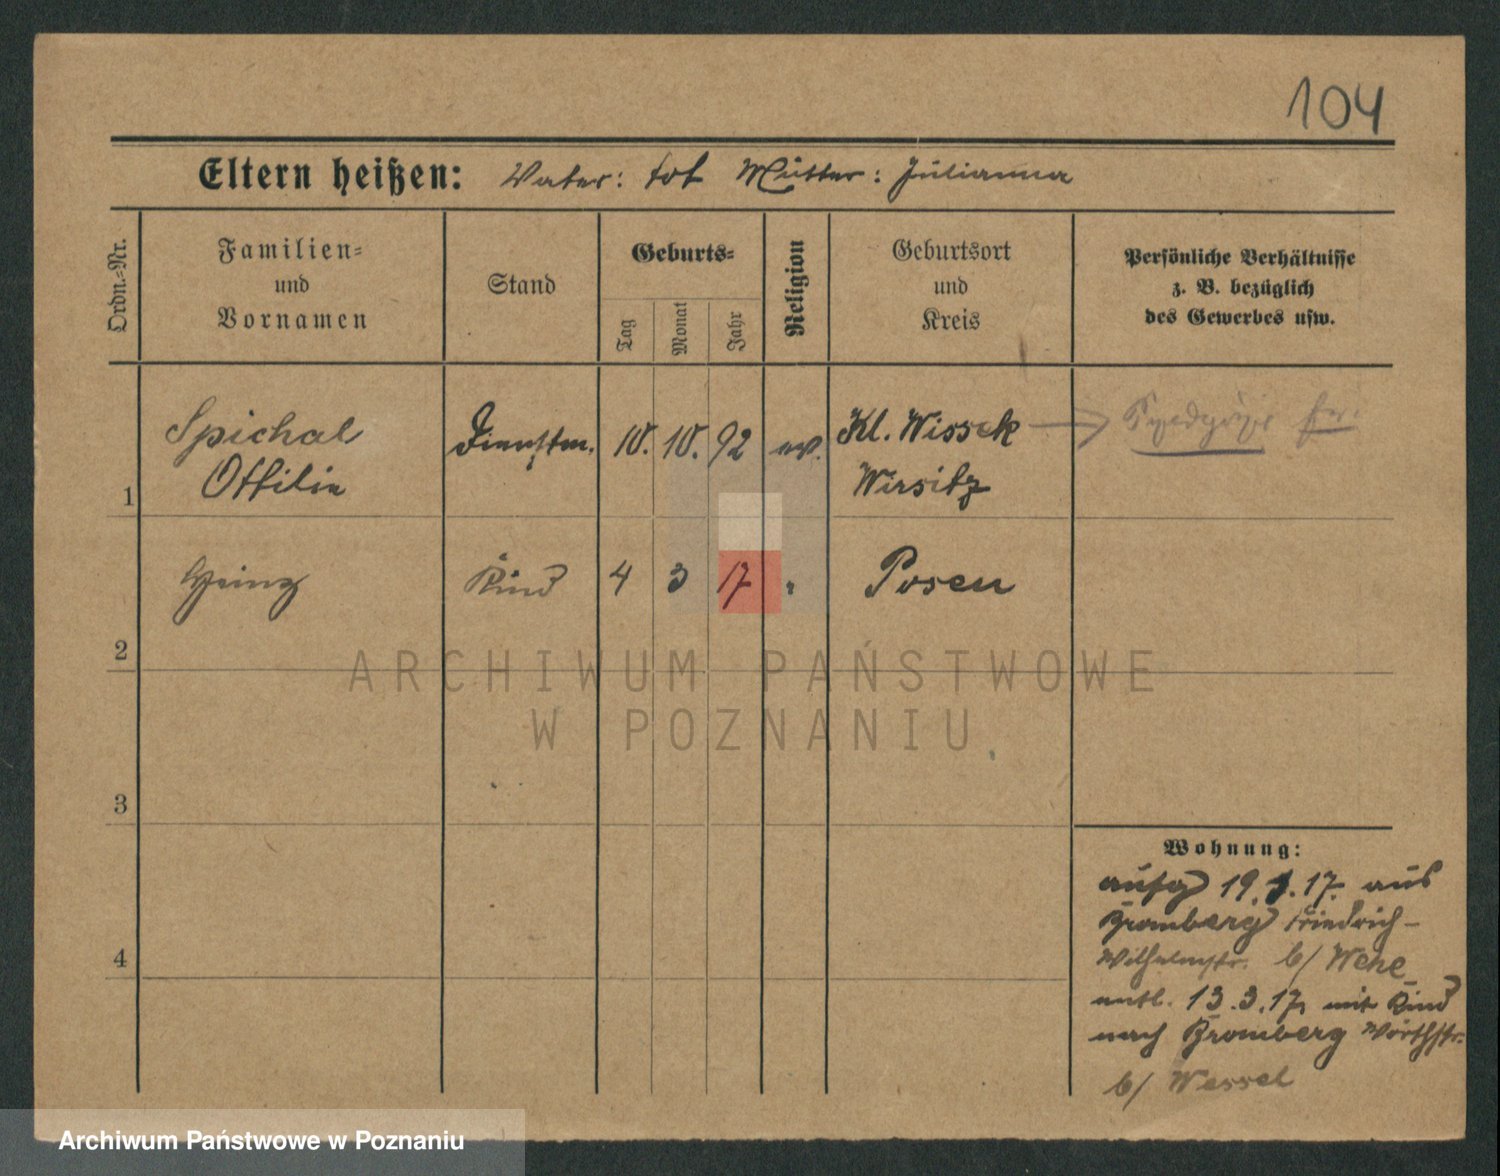 104
Eltern heißen: Vater: tot Mutter: Julianna
Ordn.-Nr.
Familien-
und
Vornamen
Stand
Geburts-
Tag
Monat
Jahr
Religion
Geburtsort
und
Kreis
Persönliche Verhältnisse
z. B. bezüglich
des Gewerbes usw.
1
Spichal
Ottilie
Dienstm.
10. 10. 92
ev.
Kl. Wissek
Wirsitz
2
Heinz
Kind
4 3 17
"
Posen
3
4
Wohnung:
aufg 19. 1. 17. aus
Bromberg Friedrich-
Wilhelmstr. b/ Wehe
entl. 13. 3. 17, mit Kind
nach Bromberg Wörthstr.
b/ Wessel
ARCHIWUM PAŃSTWOWE
W POZNANIU
Archiwum Państwowe w Poznaniu